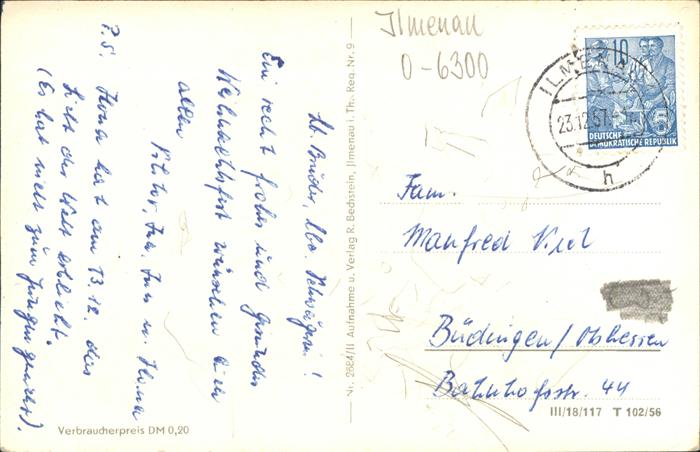 Lb. Bruder, lbe. Schwägerin!
Ein recht frohes und gesundes
Weihnachtsfest wünschen Euch
allen
Viktor, Ina, u. Ilona
P.S. Ilona hat am 13.12. das
Licht der Welt erblickt.
(Es hat nicht zum Jungen gereicht).
Verbraucherpreis DM 0,20
Nr. 2684/II Aufnahme u. Verlag R. Bechstein, Ilmenau i. Th. Reg. Nr. 9
Ilmenau
O-6300
10
DEUTSCHE
DEMOKRATISCHE REPUBLIK
5
ILMENAU
23.12.57
h
Fam.
Manfred
Büdingen/Oberhessen
Bahnhofstr. 44
III/18/117 T 102/56